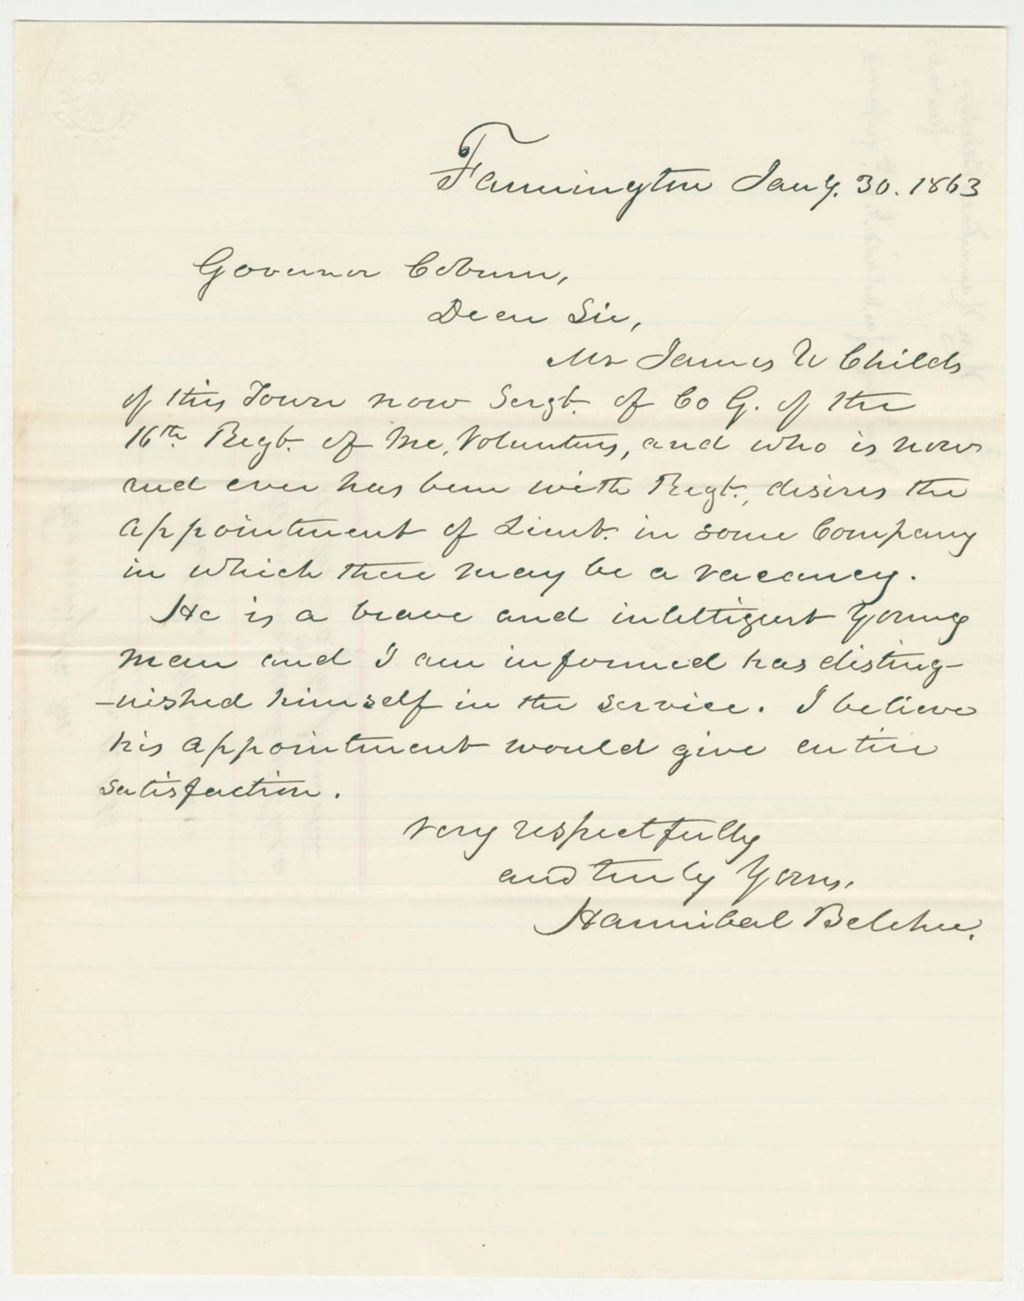 Farmington Jany. 30. 1863
Governor Coburn,
Dear Sir,
Mr James U Childs
of this Town now Sergt. of Co G. of the
16th Regt. of Me. Volunters, and who is now
and ever has been with Regt., desires the
appointment of Lieut. in some Company
in which there may be a vacancy.
He is a brave and intelligent Young
man and I am informed has disting-
-uished himself in the service. I believe
his appointment would give entire
satisfaction.
Very respectfully
and truly Yours,
Hannibal Belcher.